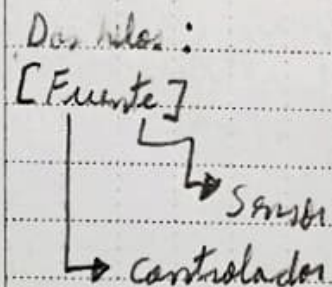 Dos hilos:
[Fuente]
Sensor
Controlador